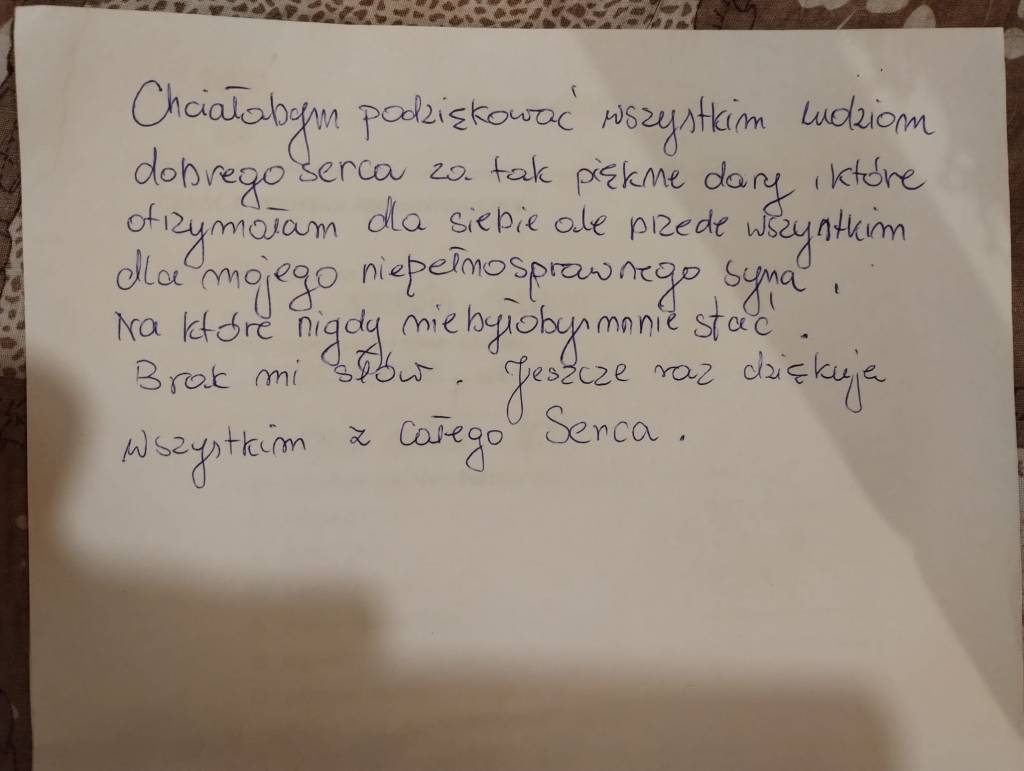 Chciałabym podziękować wszystkim ludziom
dobrego serca za tak piękne dary, które
otrzymałam dla siebie ale przede wszystkim
dla mojego niepełnosprawnego syna.
Na które nigdy nie byłoby mnie stać.
Brak mi słów. Jeszcze raz dziękuje
wszystkim z całego Serca.